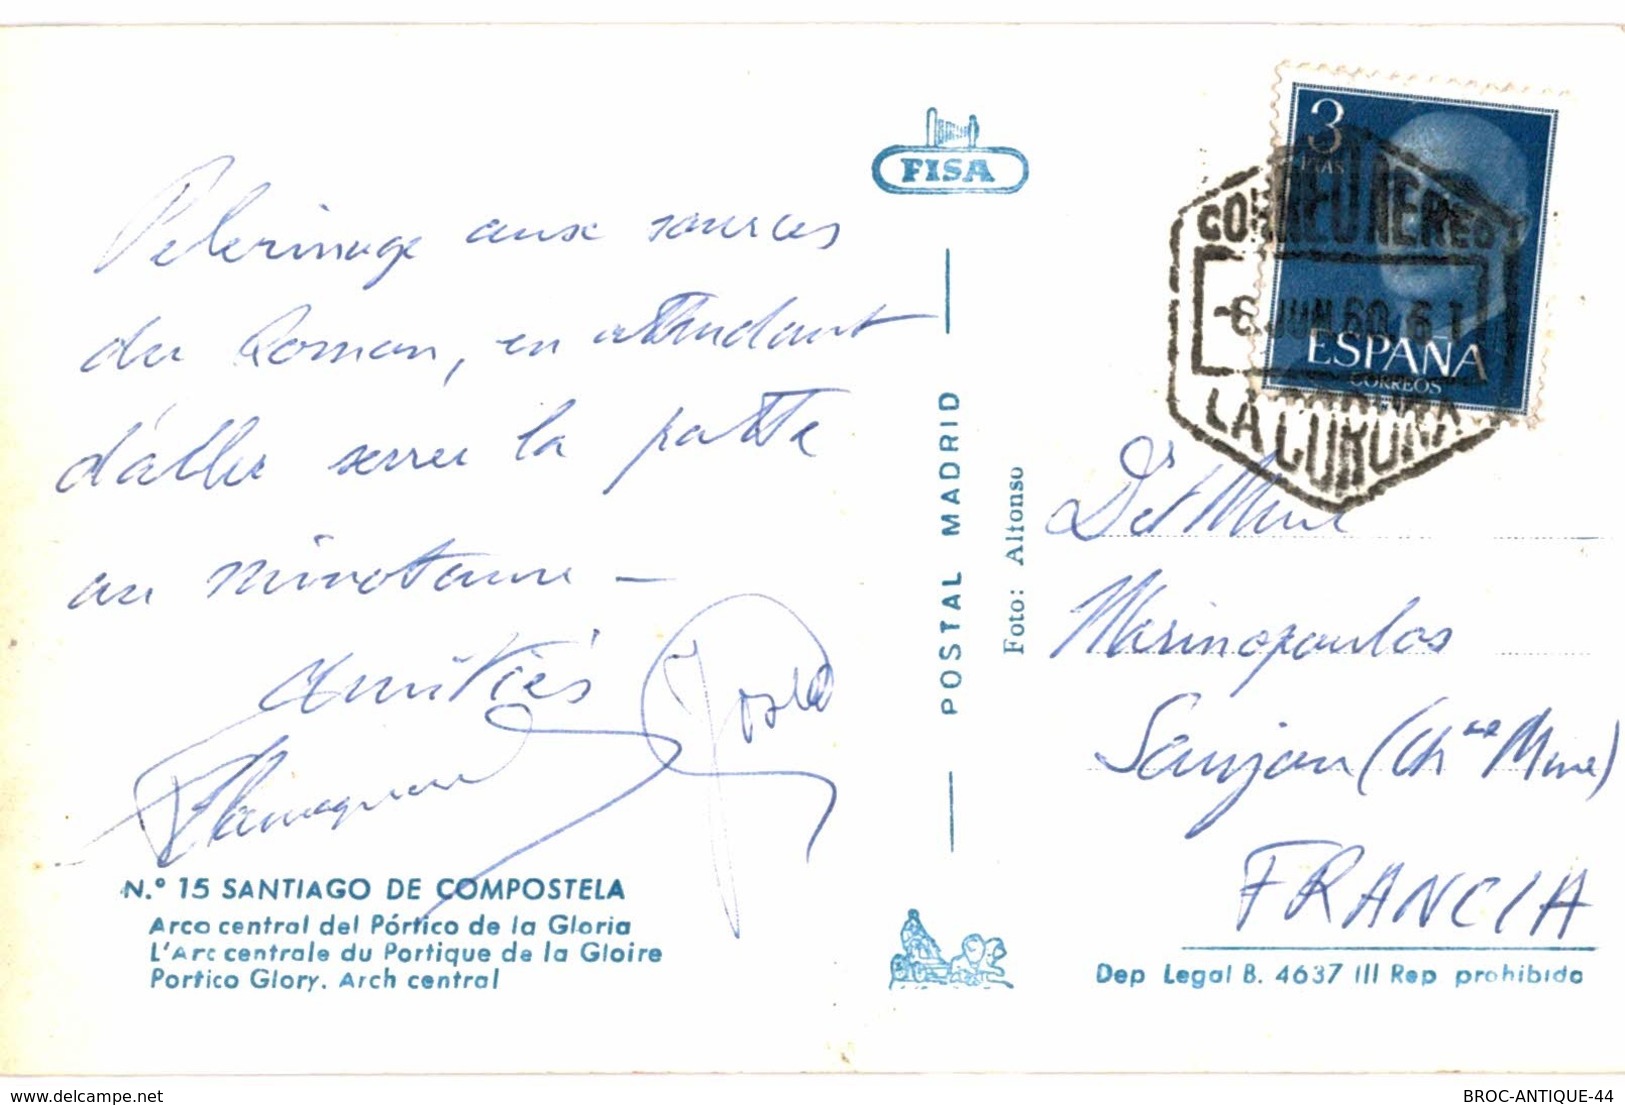 Pelerinage aux sources
du Roman, en attendant
d'aller serrer la patte
au minotaure –
Amitiés
N.º 15 SANTIAGO DE COMPOSTELA
Arco central del Pórtico de la Gloria
L'Arc centrale du Portique de la Gloire
Portico Glory. Arch central
FISA
POSTAL MADRID
Foto: Alfonso
3
PTAS
ESPAÑA
CORREOS
CORREO AEREO
-6 JUN.60. 6T
LA CORUÑA
Dr et Mme
Marinopoulos
Saujon (Chte Mme)
FRANCIA
Dep Legal B. 4637 III Rep prohibida
www.delcampe.net
BROC-ANTIQUE-44